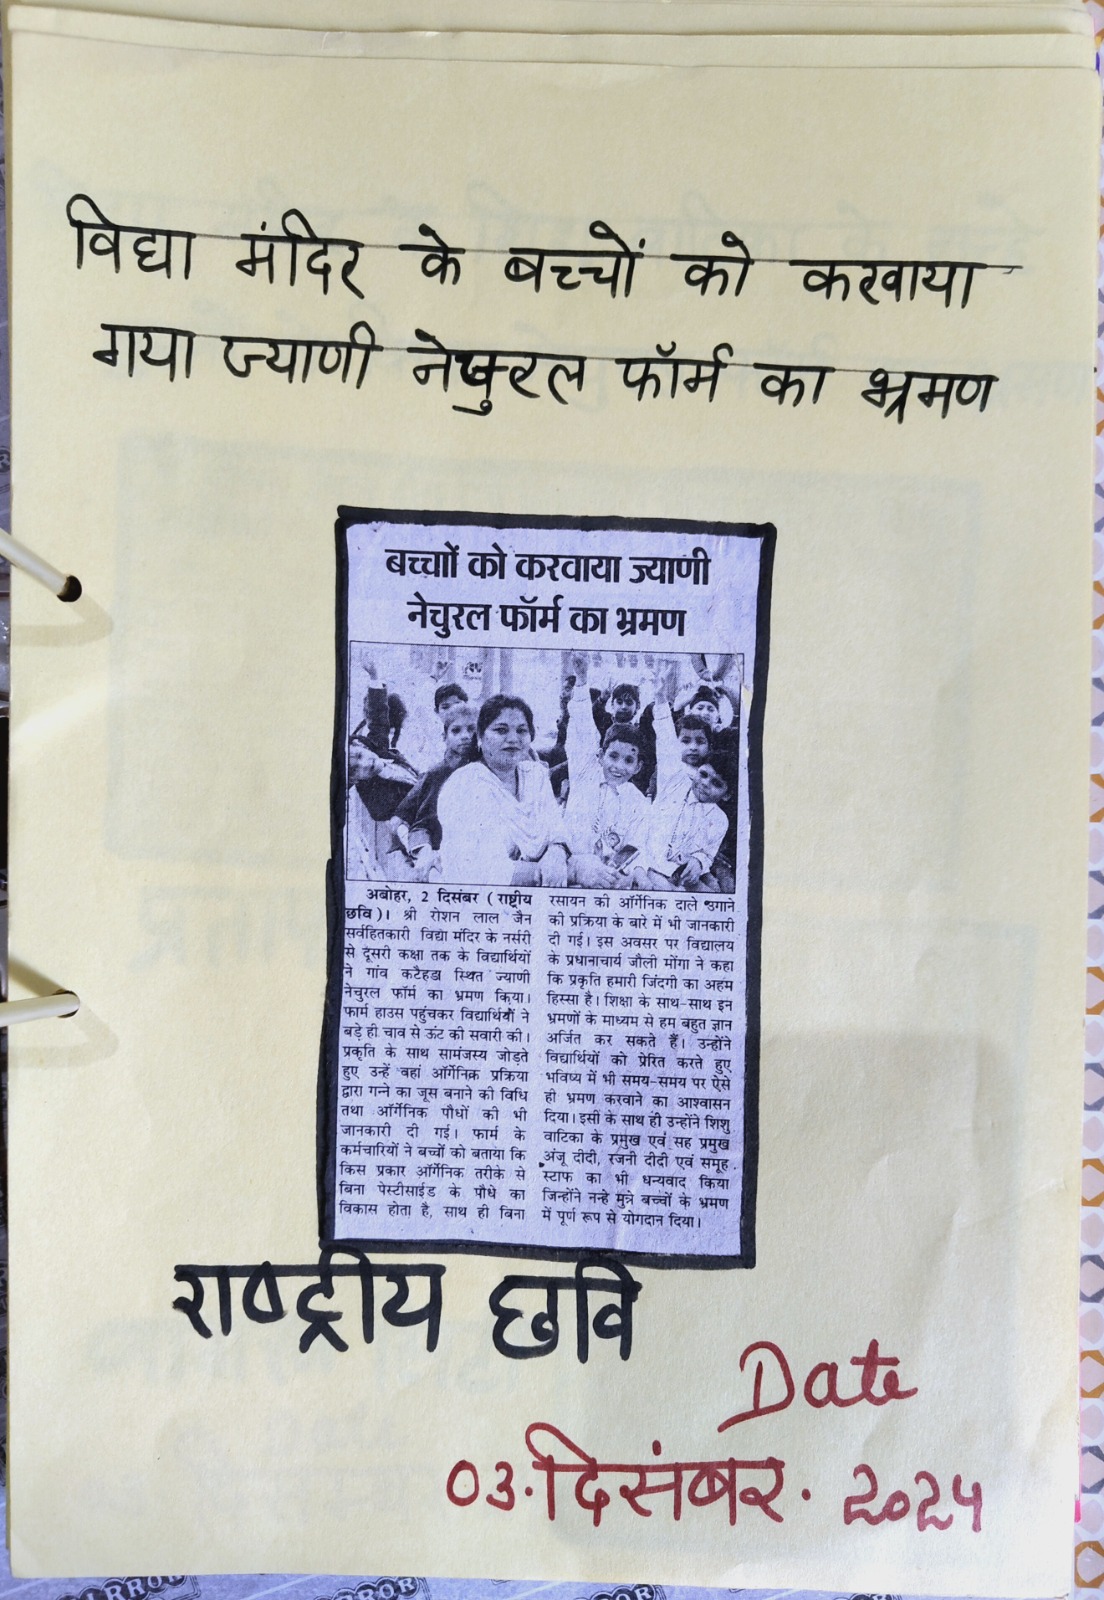 विद्या मंदिर के बच्चों को करवाया
गया ज्याणी नेचुरल फॉर्म का भ्रमण
बच्चाों को करवाया ज्याणी
नेचुरल फॉर्म का भ्रमण
अबोहर, 2 दिसंबर (राष्ट्रीय
छवि)। श्री रोशन लाल जैन
सर्वहितकारी विद्या मंदिर के नर्सरी
से दूसरी कक्षा तक के विद्यार्थियों
ने गांव कटैहडा स्थित ज्याणी
नेचुरल फॉर्म का भ्रमण किया।
फार्म हाउस पहुंचकर विद्यार्थियों ने
बड़े ही चाव से ऊंट की सवारी की।
प्रकृति के साथ सामंजस्य जोड़ते
हुए उन्हें वहां ऑर्गेनिक प्रक्रिया
द्वारा गन्ने का जूस बनाने की विधि
तथा ऑर्गेनिक पौधों की भी
जानकारी दी गई। फार्म के
कर्मचारियों ने बच्चों को बताया कि
किस प्रकार ऑर्गेनिक तरीके से
बिना पेस्टीसाईड के पौधे का
विकास होता है, साथ ही बिना
रसायन की ऑर्गेनिक दाले उगाने
की प्रक्रिया के बारे में भी जानकारी
दी गई। इस अवसर पर विद्यालय
के प्रधानाचार्य जौली मोंगा ने कहा
कि प्रकृति हमारी जिंदगी का अहम
हिस्सा है। शिक्षा के साथ-साथ इन
भ्रमणों के माध्यम से हम बहुत ज्ञान
अर्जित कर सकते हैं। उन्होंने
विद्यार्थियों को प्रेरित करते हुए
भविष्य में भी समय-समय पर ऐसे
ही भ्रमण करवाने का आश्वासन
दिया। इसी के साथ ही उन्होंने शिशु
वाटिका के प्रमुख एवं सह प्रमुख
अंजू दीदी, रजनी दीदी एवं समूह
स्टाफ का भी धन्यवाद किया
जिन्होंने नन्हे मुन्ने बच्चों के भ्रमण
में पूर्ण रूप से योगदान दिया।
राष्ट्रीय छवि
Date
03.दिसंबर. 2024